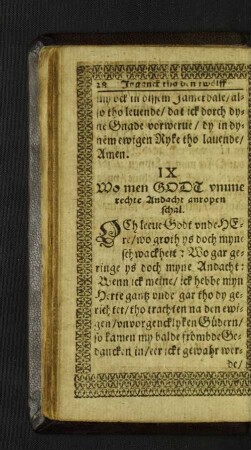 Inganck tho den twölff
my ock in dissem Jamerdale/ al-
so tho leuende/ dat ick dorch dy-
ne Gnade vorwerue/ dy in dy-
nem ewigen Ryke tho lauende/
Amen.
IX
Wo men GODT vmme
rechte Andacht anropen
schal.
OCh leeue Godt vnde HE-
re/ wo groth ys doch myne
schwackheit: Wo gar ge-
ringe ys doch myne Andacht:
Wenn ick meine/ ick hebbe myn
Herte gantz vnde gar tho dy ge-
richtet/ tho trachten na den ewi-
gen/ vnvorgencklyken Güdern/
so kamen my balde frömbde Ge-
dancken in/ eer ickt gewahr wer-
de/